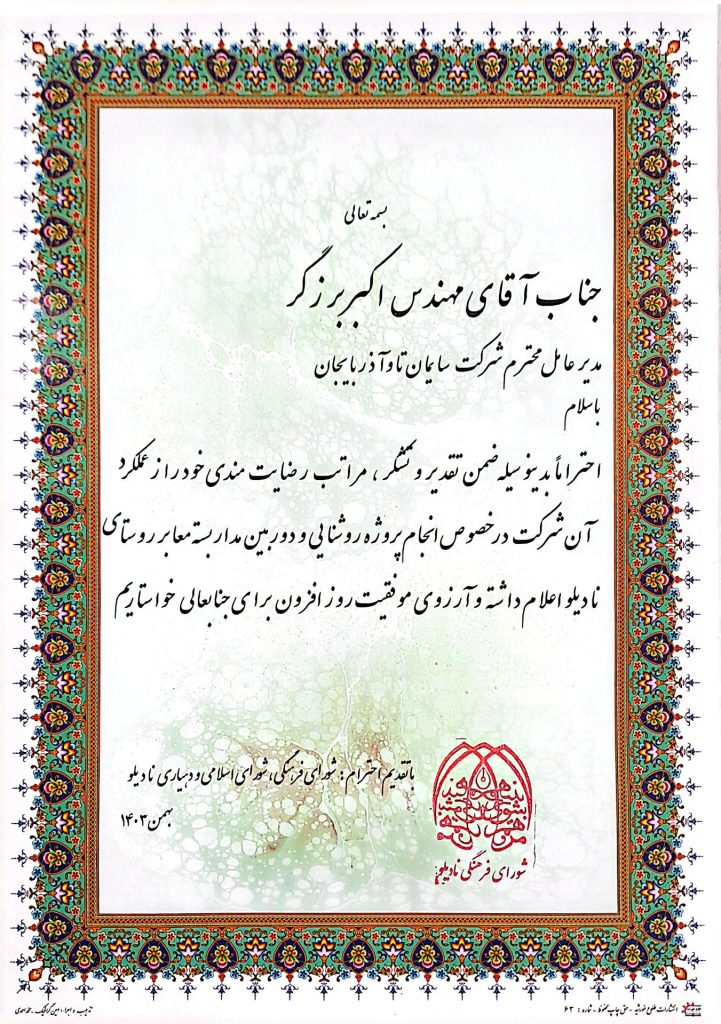 بسمه تعالی
جناب آقای مهندس اکبر برزگر
مدیر عامل محترم شرکت سایمان تاوآذربایجان
باسلام
احتراماً بدینوسیله ضمن تقدیر و تشکر ، مراتب رضایت مندی خود را از عملکرد
آن شرکت درخصوص انجام پروژه روشنایی و دوربین مداربسته معابر روستای
نادیلو اعلام داشته و آرزوی موفقیت روز افزون برای جنابعالی خواستاریم
باتقدیم احترام : شورای فرهنگی، شورای اسلامی و دهیاری نادیلو
بهمن ۱۴۰۳
شورای فرهنگی نادیلو
انتشارات طلوع خورشید - حق چاپ محفوظ - شماره : ۶۳